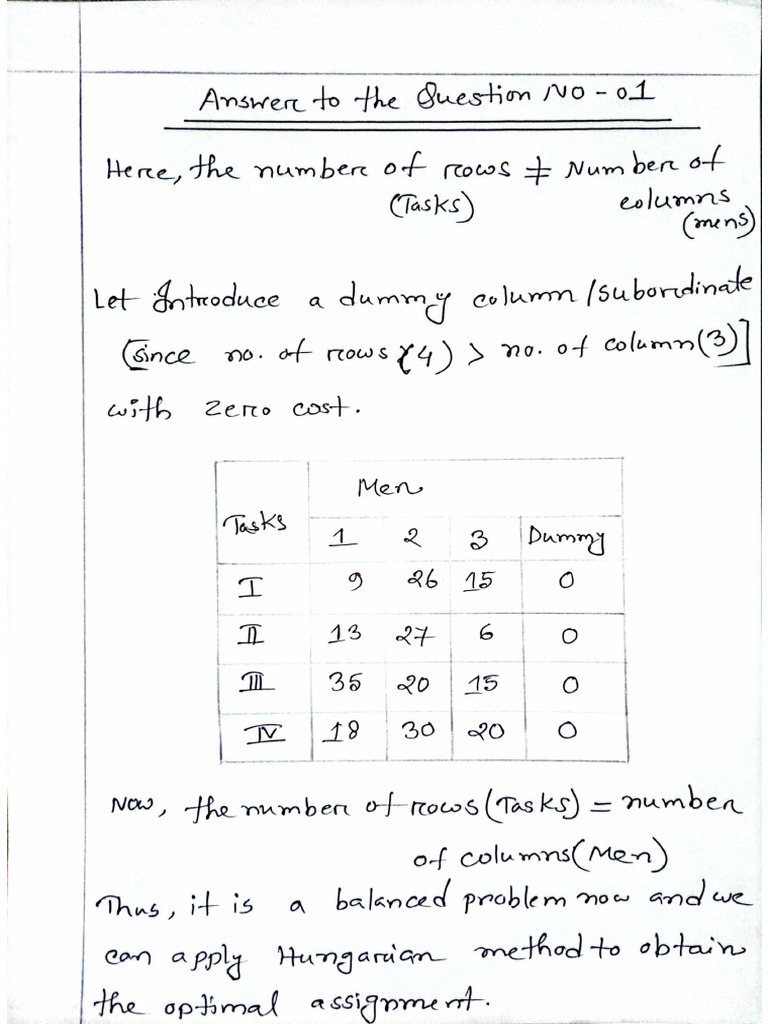 Answer to the Question NO - 01
Here, the number of rows ≠ Number of
(Tasks) columns
(mens)
Let Introduce a dummy column/subordinate
(since no. of rows (4) > no. of column (3)]
with zero cost.
Men
Tasks
1 2 3 Dummy
I 9 26 15 0
II 13 27 6 0
III 35 20 15 0
IV 18 30 20 0
Now, the number of rows (Tasks) = number
of columns (Men)
Thus, it is a balanced problem now and we
can apply Hungarian method to obtain
the optimal assignment.